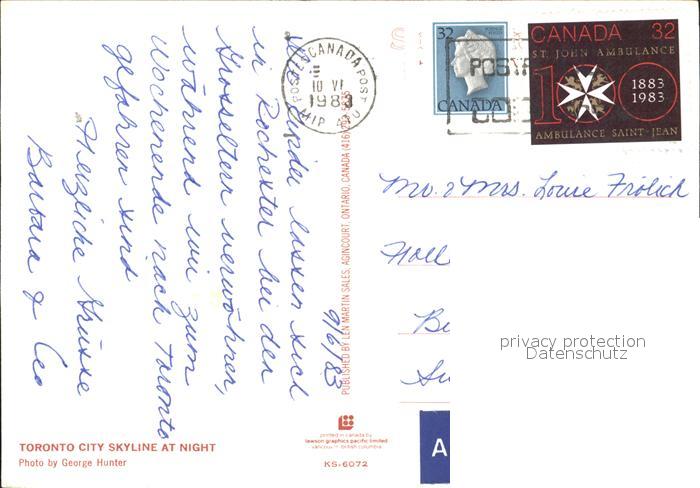 9/6/83
Die Kinder lassen sich
in Rochester bei den
Grosseltern verwöhnen,
während wir zum
Wochenende nach Toronto
gefahren sind
Herzliche Grüsse
Barbara & Leo
POSTES CANADA POST
10 VI
1983
32
CANADA
CANADA 32
ST. JOHN AMBULANCE
100
1883
1983
AMBULANCE SAINT-JEAN
Mr. & Mrs. Louie Frölich
PUBLISHED BY LEN MARTIN SALES, AGINCOURT, ONTARIO, CANADA (416)
privacy protection
Datenschutz
A
TORONTO CITY SKYLINE AT NIGHT
Photo by George Hunter
printed in canada by
lawson graphics pacific limited
vancouver british columbia
KS-6072